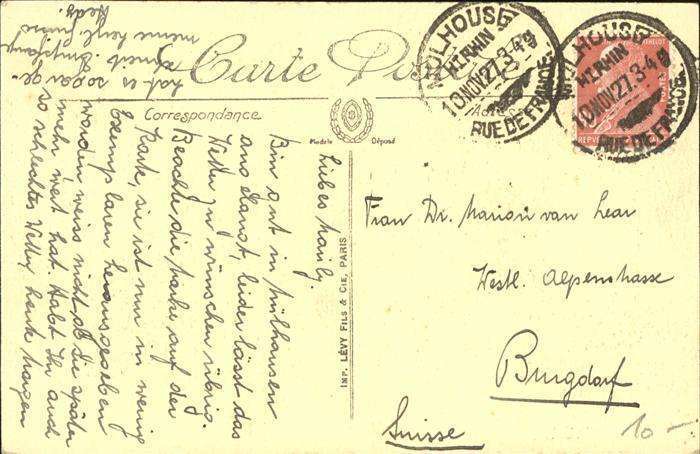 Carte Postale
Correspondance
Modèle Déposé
MULHOUSE
HT RHIN
10 NOV 27. 3-4
RUE DE FRANCE
MULHOUSE
HT RHIN
10 NOV 27. 3-4
RUE DE FRANCE
BERTHELOT
POSTES
Liebes Maily.
Bin gut in Mülhausen
angelangt, leider lässt das
Wetter zu wünschen übrig.
Beachte die Marke auf der
Karte, sie ist nur in wenig
Exemplaren herausgegeben
worden weiss nicht, ob die später
mehr wert hat. Habt Ihr auch
so schlechtes Wetter, heute morgen
hat es sogar ge-
schneit.
meine herzl.
Hedy.
IMP. LÉVY FILS & CIE, PARIS
Frau Dr. Marion van Lear
Westl. Alpenstrasse
Burgdorf
Suisse
10 –